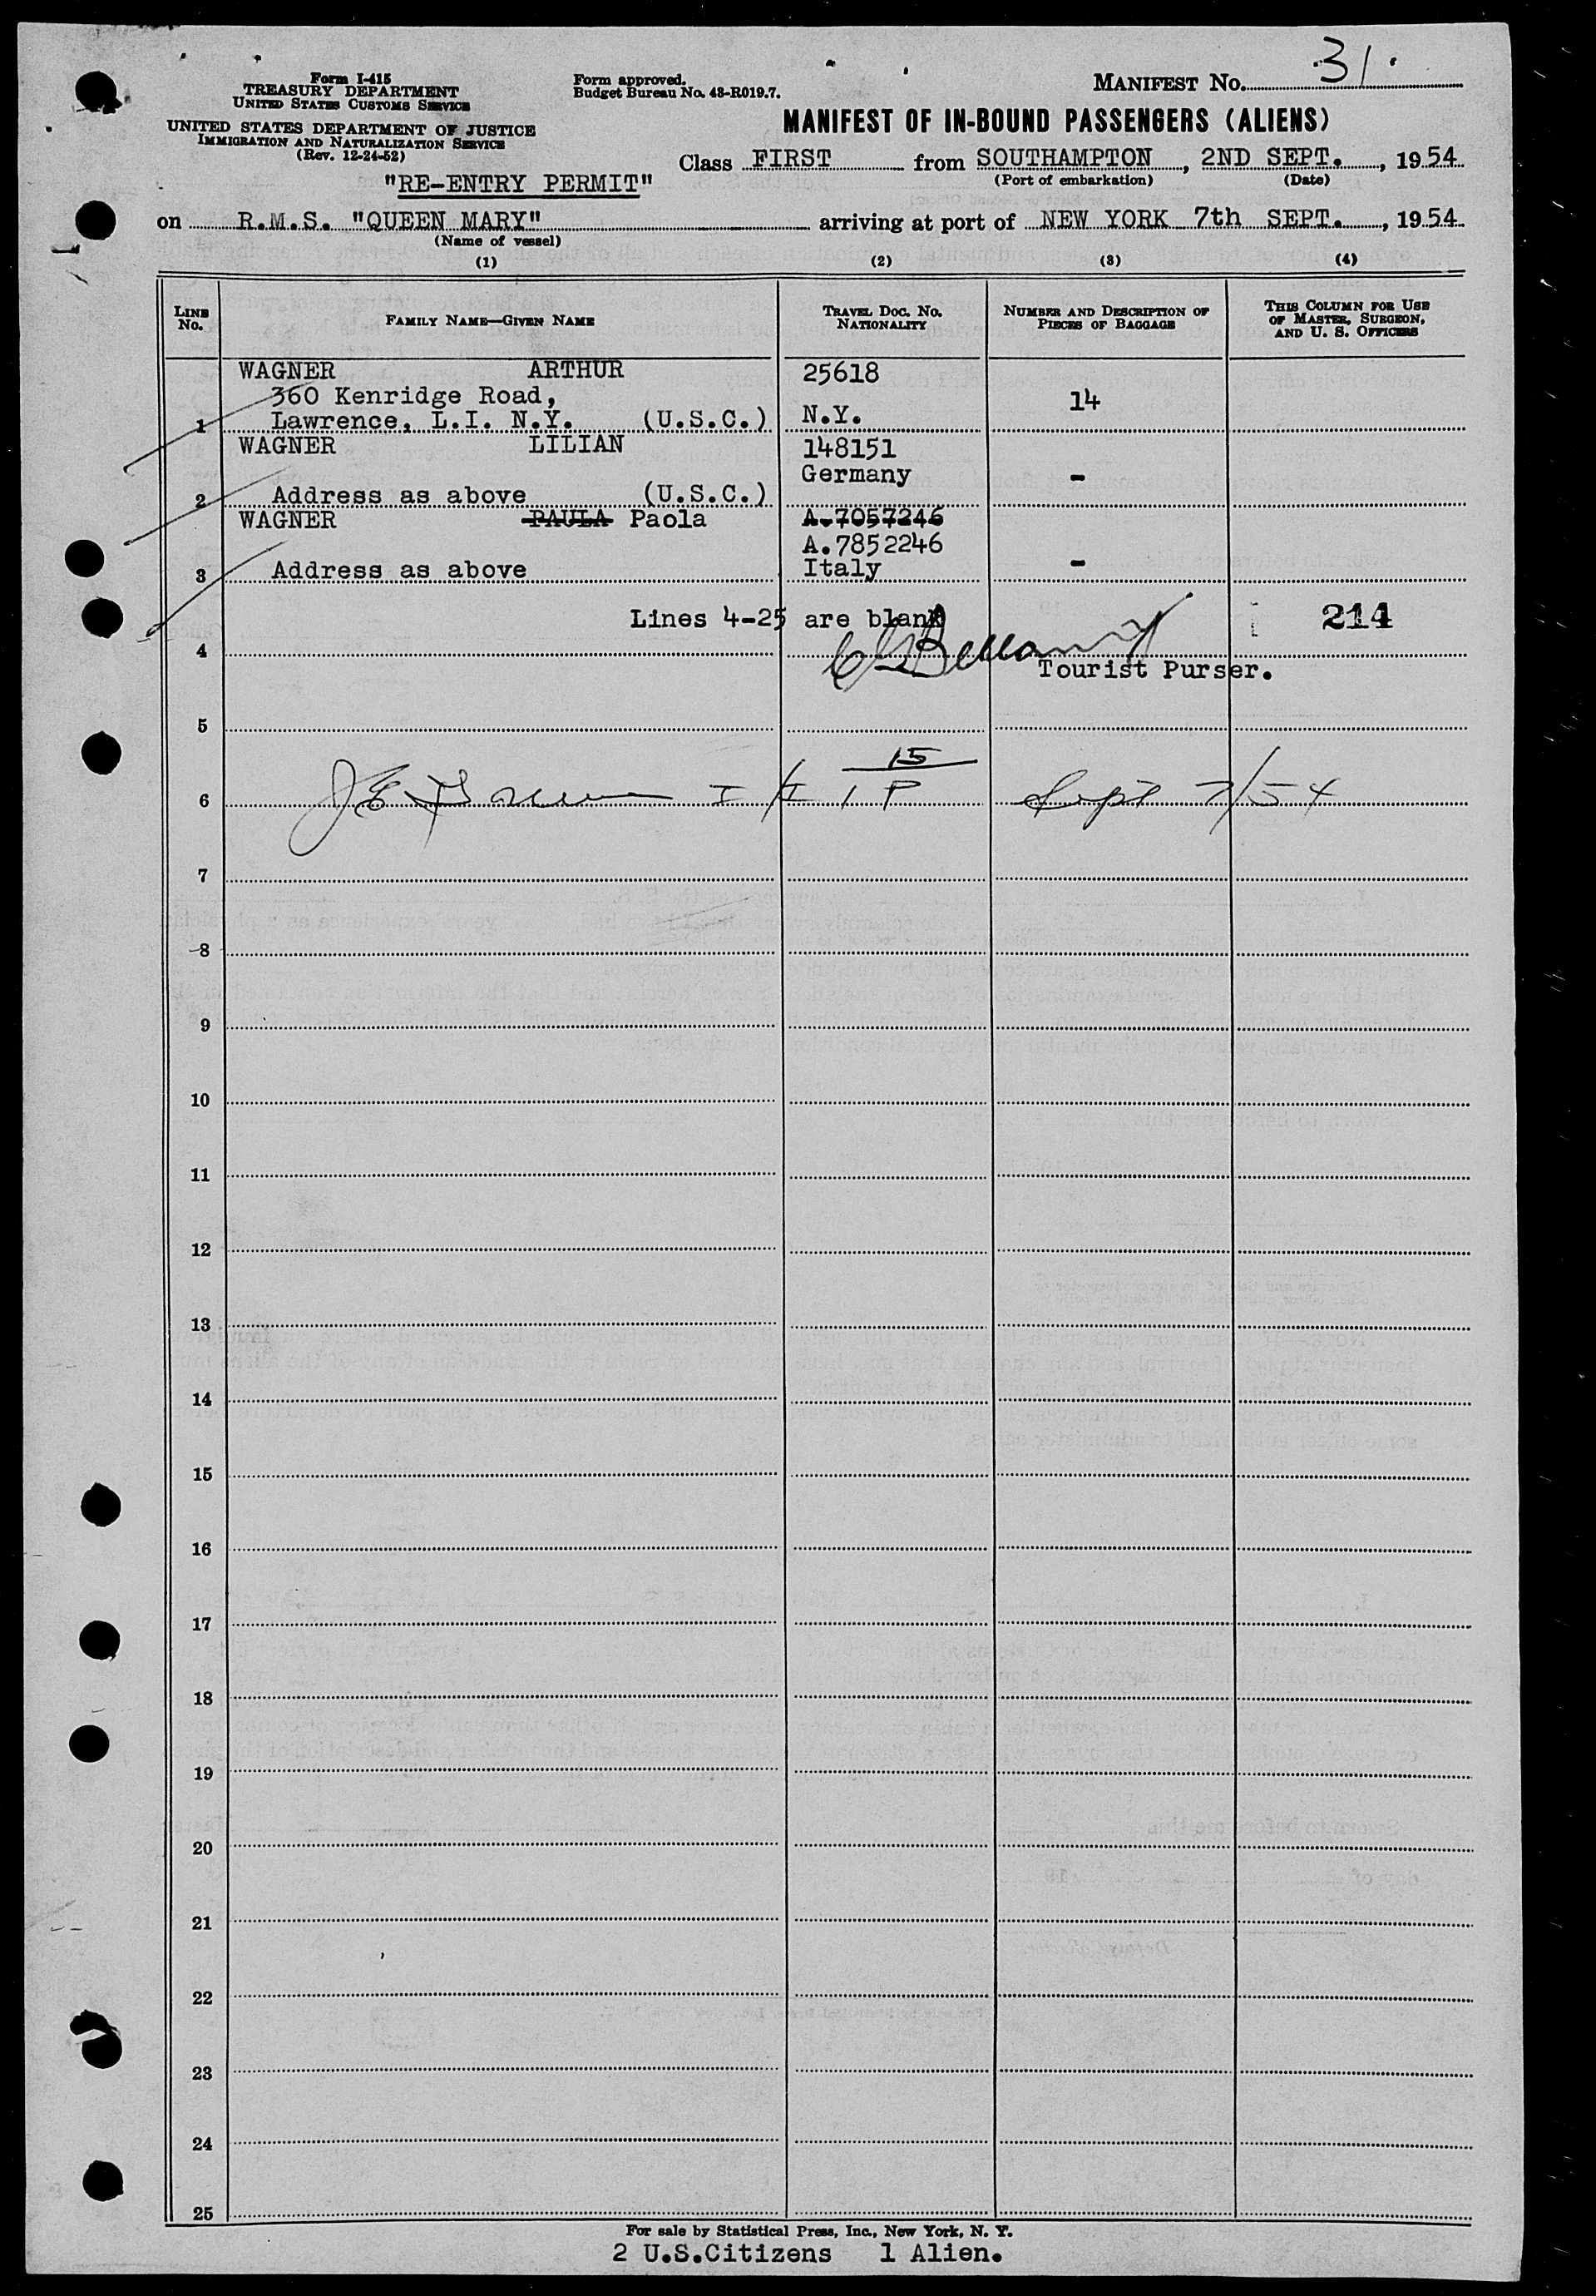 Form I-415
TREASURY DEPARTMENT
UNITED STATES CUSTOMS SERVICE
UNITED STATES DEPARTMENT OF JUSTICE
IMMIGRATION AND NATURALIZATION SERVICE
(Rev. 12-24-52)
Form approved.
Budget Bureau No. 43-R019.7.
MANIFEST No. 31
MANIFEST OF IN-BOUND PASSENGERS (ALIENS)
Class FIRST from SOUTHAMPTON, 2ND SEPT., 1954
(Port of embarkation) (Date)
"RE-ENTRY PERMIT"
on R.M.S. "QUEEN MARY" arriving at port of NEW YORK 7th SEPT., 1954
(Name of vessel)
(1) (2) (3) (4)
LINE No. FAMILY NAME—GIVEN NAME TRAVEL DOC. NO. NATIONALITY NUMBER AND DESCRIPTION OF PIECES OF BAGGAGE THIS COLUMN FOR USE OF MASTER, SURGEON, AND U. S. OFFICERS
WAGNER ARTHUR 25618
360 Kenridge Road, 14
1 Lawrence, L.I. N.Y. (U.S.C.) N.Y.
WAGNER LILIAN 148151
Germany -
2 Address as above (U.S.C.)
WAGNER PAULA Paola A.7057246
A.7852246
3 Address as above Italy -
Lines 4-25 are blank 214
4
Tourist Purser.
5
15
6 Sept 7/54
7
8
9
10
11
12
13
14
15
16
17
18
19
20
21
22
23
24
25
For sale by Statistical Press, Inc., New York, N. Y.
2 U.S.Citizens 1 Alien.